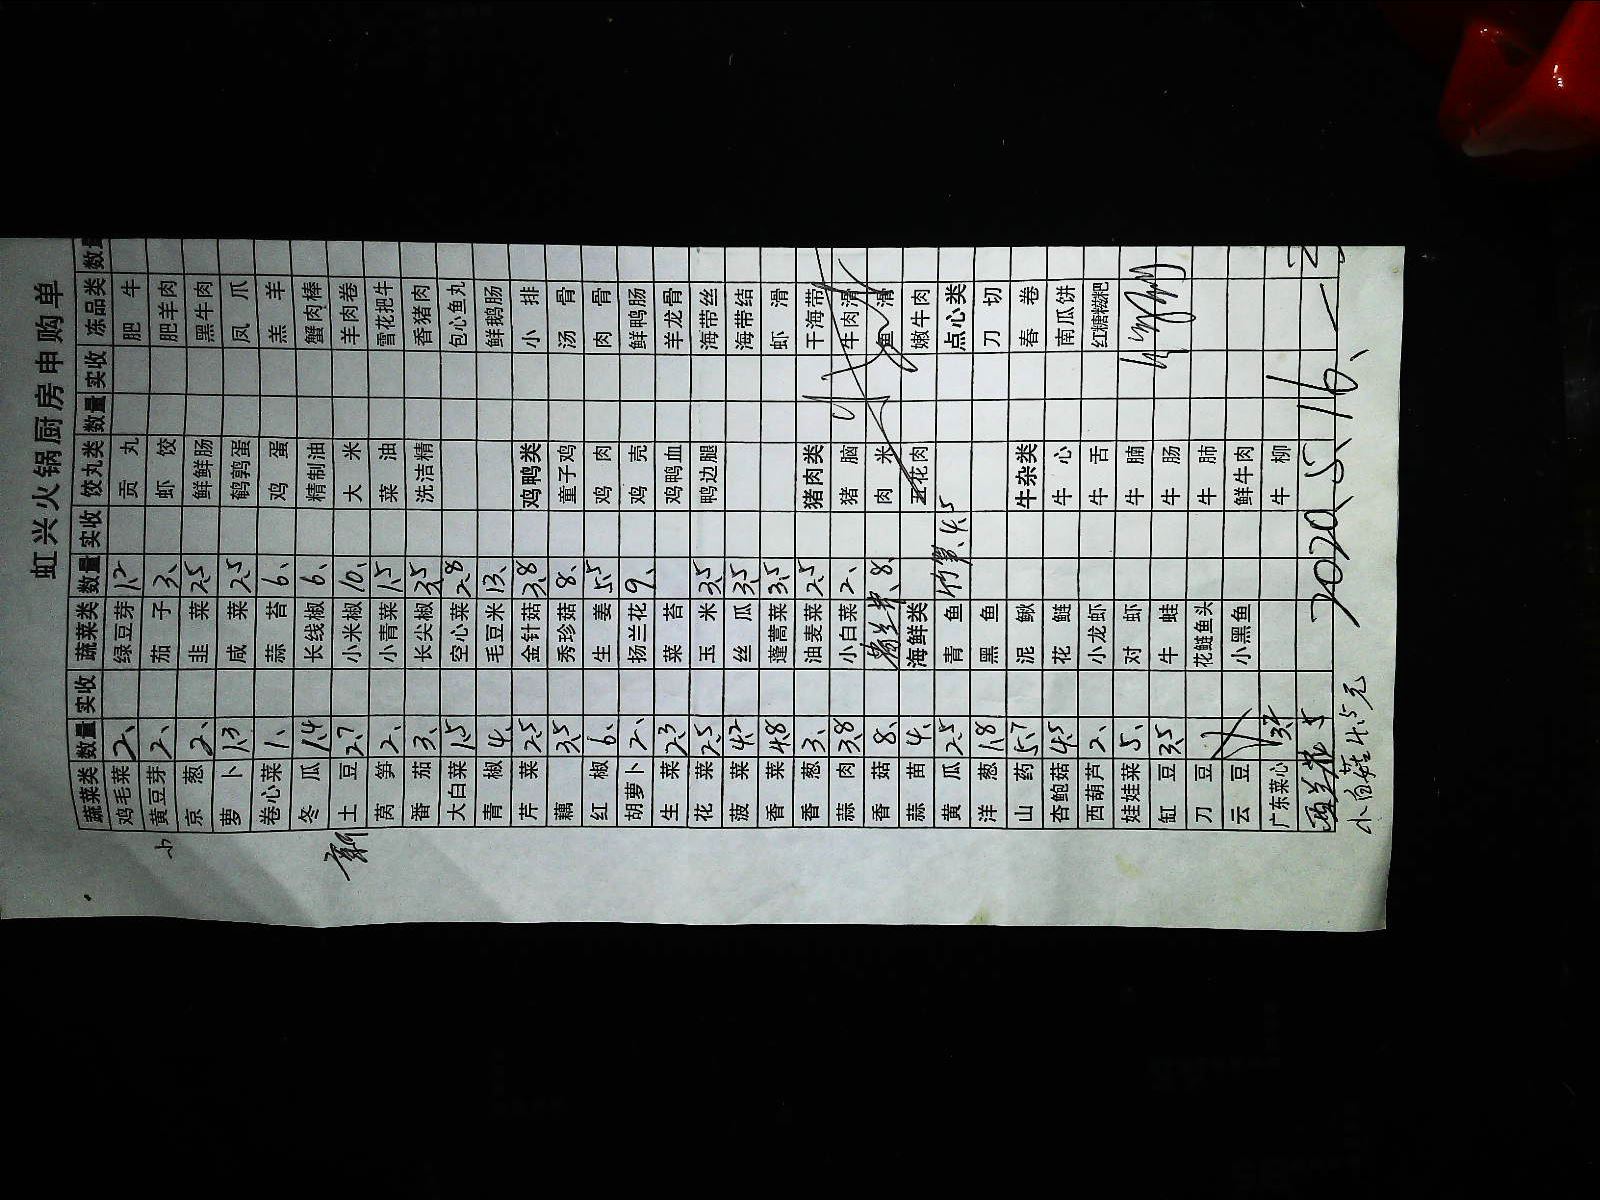 虹兴火锅厨房申购单
蔬菜类 数量 实收 蔬菜类 数量 实收 饺丸类 数量 实收 冻品类 数量
鸡毛菜 2、 绿豆芽 1.2 贡丸 肥牛
小 黄豆芽 2、 茄子 3、 虾饺 肥羊肉
京葱 2、 韭菜 2.5 鲜鲜肠 黑牛肉
萝卜 1.3 咸菜 2.5 鹌鹑蛋 凤爪
卷心菜 1、 蒜苔 6、 鸡蛋 羔羊
冬瓜 1.4 长线椒 6、 精制油 蟹肉棒
新 土豆 2.7 小米椒 10、 大米 羊肉卷
莴笋 2、 小青菜 1.5 菜油 雪花把牛
番茄 3、 长尖椒 3.5 洗洁精 香猪肉
大白菜 1.5 空心菜 2.8 包心鱼丸
青椒 4、 毛豆米 13、 鲜鹅肠
芹菜 2.5 金针菇 3.8 鸡鸭类 小排
藕 3.5 秀珍菇 8、 童子鸡 汤骨
红椒 6、 生姜 5.5 鸡肉 肉骨
胡萝卜 2、 扬兰花 9、 鸡壳 鲜鸭肠
生菜 2.3 菜苔 鸡鸭血 羊龙骨
花菜 2.5 玉米 3.5 鸭边腿 海带丝
菠菜 4.2 丝瓜 3.5 海带结
香菜 4.8 蓬蒿菜 3.5 虾滑
香葱 3、 油麦菜 2.5 猪肉类 干海带
蒜肉 3.8 小白菜 2、 猪脑 牛肉滑
香菇 8、 8、 肉米 鱼滑
蒜苗 4、 海鲜类 五花肉 嫩牛肉
黄瓜 2.5 青鱼 竹笋 4.5 点心类
洋葱 1.8 黑鱼 刀切
山药 5.7 泥鳅 牛杂类 春卷
杏鲍菇 4.5 花鲢 牛心 南瓜饼
西葫芦 2、 小龙虾 牛舌 红糖糍粑
娃娃菜 5、 对虾 牛腩
缸豆 3.5 牛蛙 牛肠
刀豆 花鲢鱼头 牛肺
云豆 小黑鱼 鲜牛肉
广东菜心 3.2 牛柳
西兰花 5 2020、5、16、
小白菇 4.5元